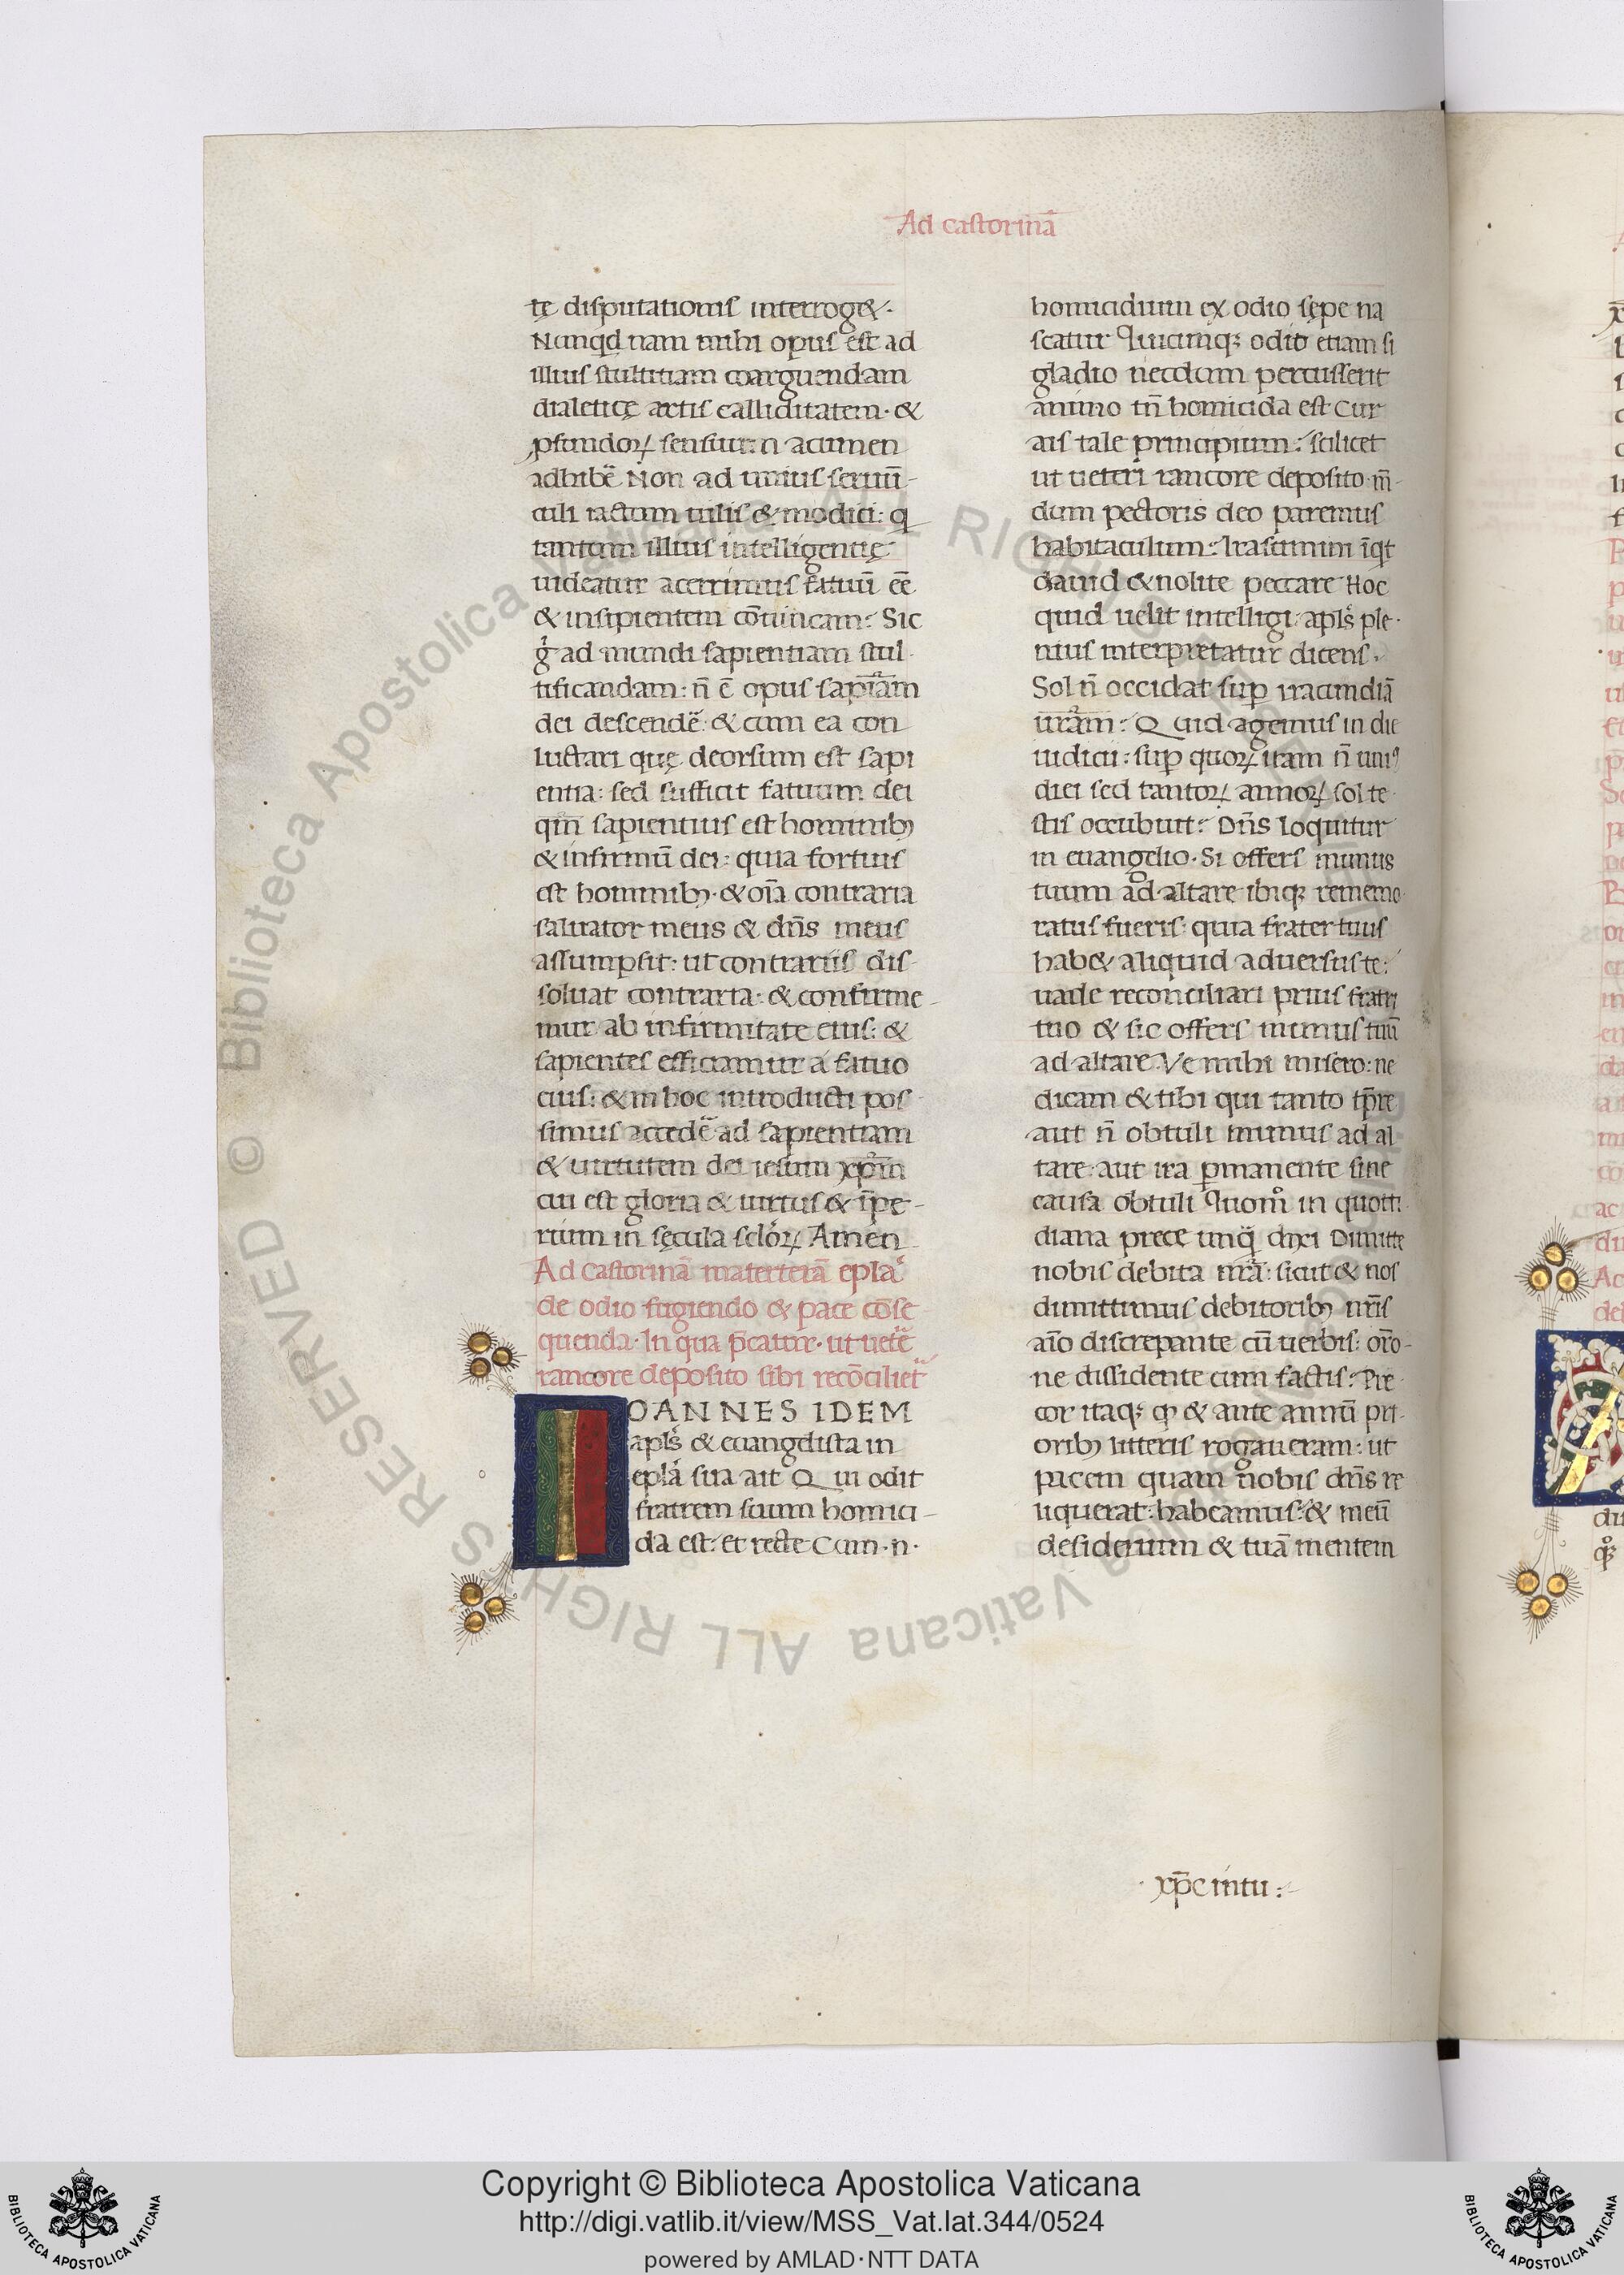 Ad castorinā
tę disputationis interrog&·
Nunqd nam mihi opus est ad
illius stultitiam coarguendam
dialeticę artis calliditatem · &
ꝓfundoꝝ sensuum acumen
adhibē Non ad unius seruū-
culi tactum uilis & modici: q
tantum illius intelligentię
uideatur acerrimus fatuū eē
& insipientem cōuincam: Sic
g̊ ad mundi sapientiam stul
tificandam: n̄ ē opus sapīam
dei descendē: & cum ea con
luctari quę deorsum est sapi
entia: sed sufficit fatuum dei
qm̄ sapientius est hominibꝫ
& infirmū dei: quia fortius
est hominibꝫ · & oīa contraria
saluator meus & dn̄s meus
assumpsit: ut contrariis dis
soluat contraria · & confirme-
mur ab infirmitate eius: &
sapientes efficiamur a fatuo
eius: & in hoc introducti pos
simus accedē ad sapientiam
& uirtutem dei iesum xp̄m
cui est gloria & uirtus & īpe-
rium in sęcula scl̄oꝝ Amen
Ad Castorinā materterā epl̄a
de odio fugiendo & pace cōse
quenda · In qua p̄catur · ut uetē
rancore deposito sibi recōciliet̄
IOANNES IDEM
apl̄s & euangelista in
epl̄a sua ait Qui odit
fratrem suum homici-
da est: et recte Cum · n ·
homicidium ex odio sępe na
scatur Quicunqꝫ odit etiam si
gladio necdum percusserit
animo tn̄ homicida est Cur
ais tale principium: scilicet
ut ueteri rancore deposito · m̄-
dum pectoris deo paremus
habitaculum: Irascimini īqt
dauid & nolite peccare Hoc
quid uelit intelligi apl̄s ple·
nius interpretatur dicens ·
Sol n̄ occidat suꝑ iracundiā
ur̄am: Quid agemus in die
iudicii: suꝑ quoꝝ iram n̄ uniꝰ
diei sed tantoꝝ annoꝝ sol te
stis occubuit: Dn̄s loquitur
in euangelio · Si offers munus
tuum ad altare ibiqꝫ rememo
ratus fueris: quia frater tuus
hab& aliquid aduersus te:
uade reconciliari prius fratri
tuo & sic offers munus tuū
ad altare Ve mihi misero: ne
dicam & tibi qui tanto tp̄re
aut n̄ obtuli munus ad al
tare: aut ira ꝑmanente sine
causa obtuli Quom̊ in quoti
diana prece unq̄ dixi Dimitte
nobis debita nr̄a: sicut & nos
dimittimus debitoribꝫ nr̄is
aīo discrepante cū uerbis: or̄o-
ne dissidente cum factis: Pre
cor itaqꝫ qđ & ante annū pri-
oribꝫ litteris rogaueram: ut
pacem quam nobis dn̄s re
liquerat: habeamus: & meū
desiderium & tuā mentem
xp̄c intu:-
© Biblioteca Apostolica Vaticana ALL RIGHTS RESERVED
Copyright © Biblioteca Apostolica Vaticana
http://digi.vatlib.it/view/MSS_Vat.lat.344/0524
powered by AMLAD·NTT DATA
BIBLIOTECA APOSTOLICA VATICANA
BIBLIOTECA APOSTOLICA VATICANA